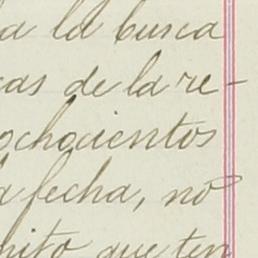 a la busca
cas de la re-
ochocientos
a fecha, no
hito que ten